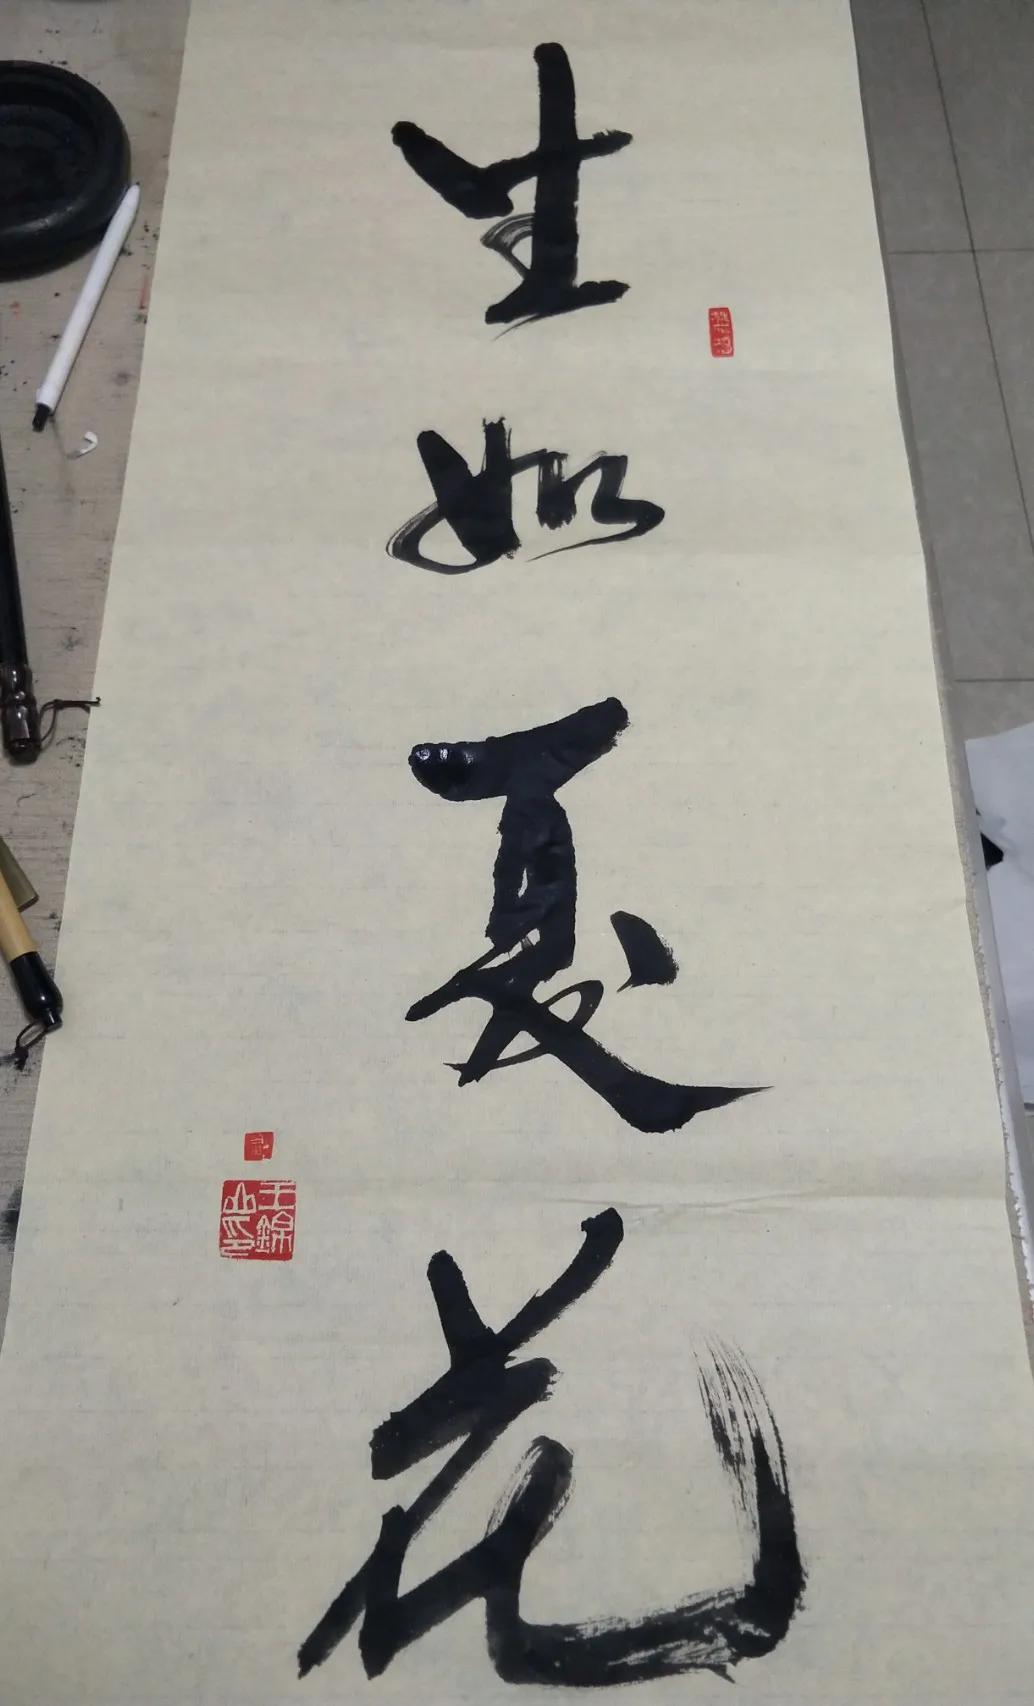 生如夏花
王錦山印